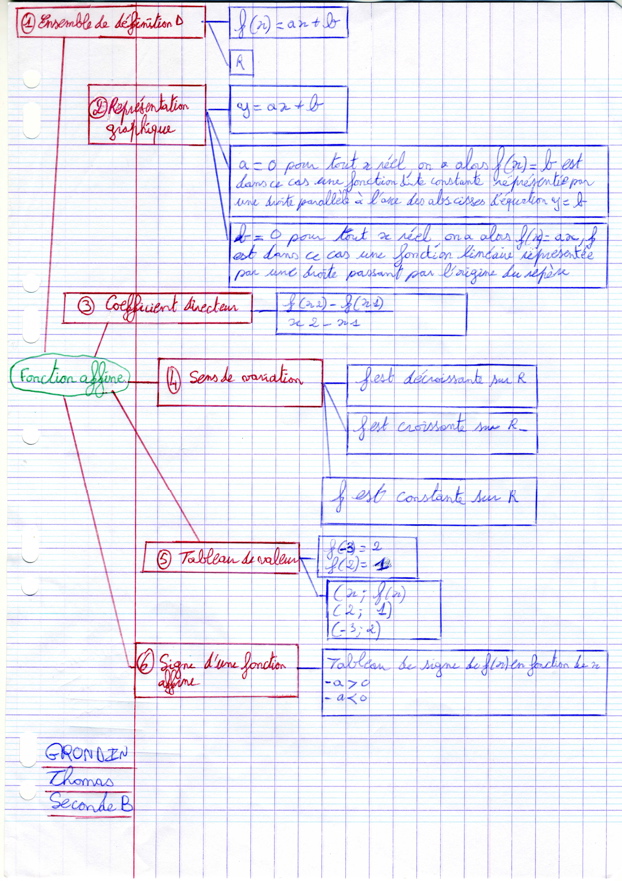 ① Ensemble de définition D
f(x) = ax + b
R
② Représentation
graphique
y = ax + b
a = 0 pour tout x réel on a alors f(x) = b est
dans ce cas une fonction dite constante représentée par
une droite parallèle à l'axe des abscisses d'équation y = b
b = 0 pour tout x réel on a alors f(x) = ax, f
est dans ce cas une fonction linéaire représentée
par une droite passant par l'origine du repère
③ Coefficient directeur
f(x2) - f(x1)
x2 - x1
Fonction affine
④ Sens de variation
f est décroissante sur R
f est croissante sur R
f est constante sur R
⑤ Tableau de valeur
f(-3) = 2
f(2) = 1
(x ; f(x)
(2 ; 1)
(-3 ; 2)
⑥ Signe d'une fonction
affine
Tableau de signe de f(x) en fonction de x
- a > 0
- a < 0
GRONDIN
Thomas
Seconde B